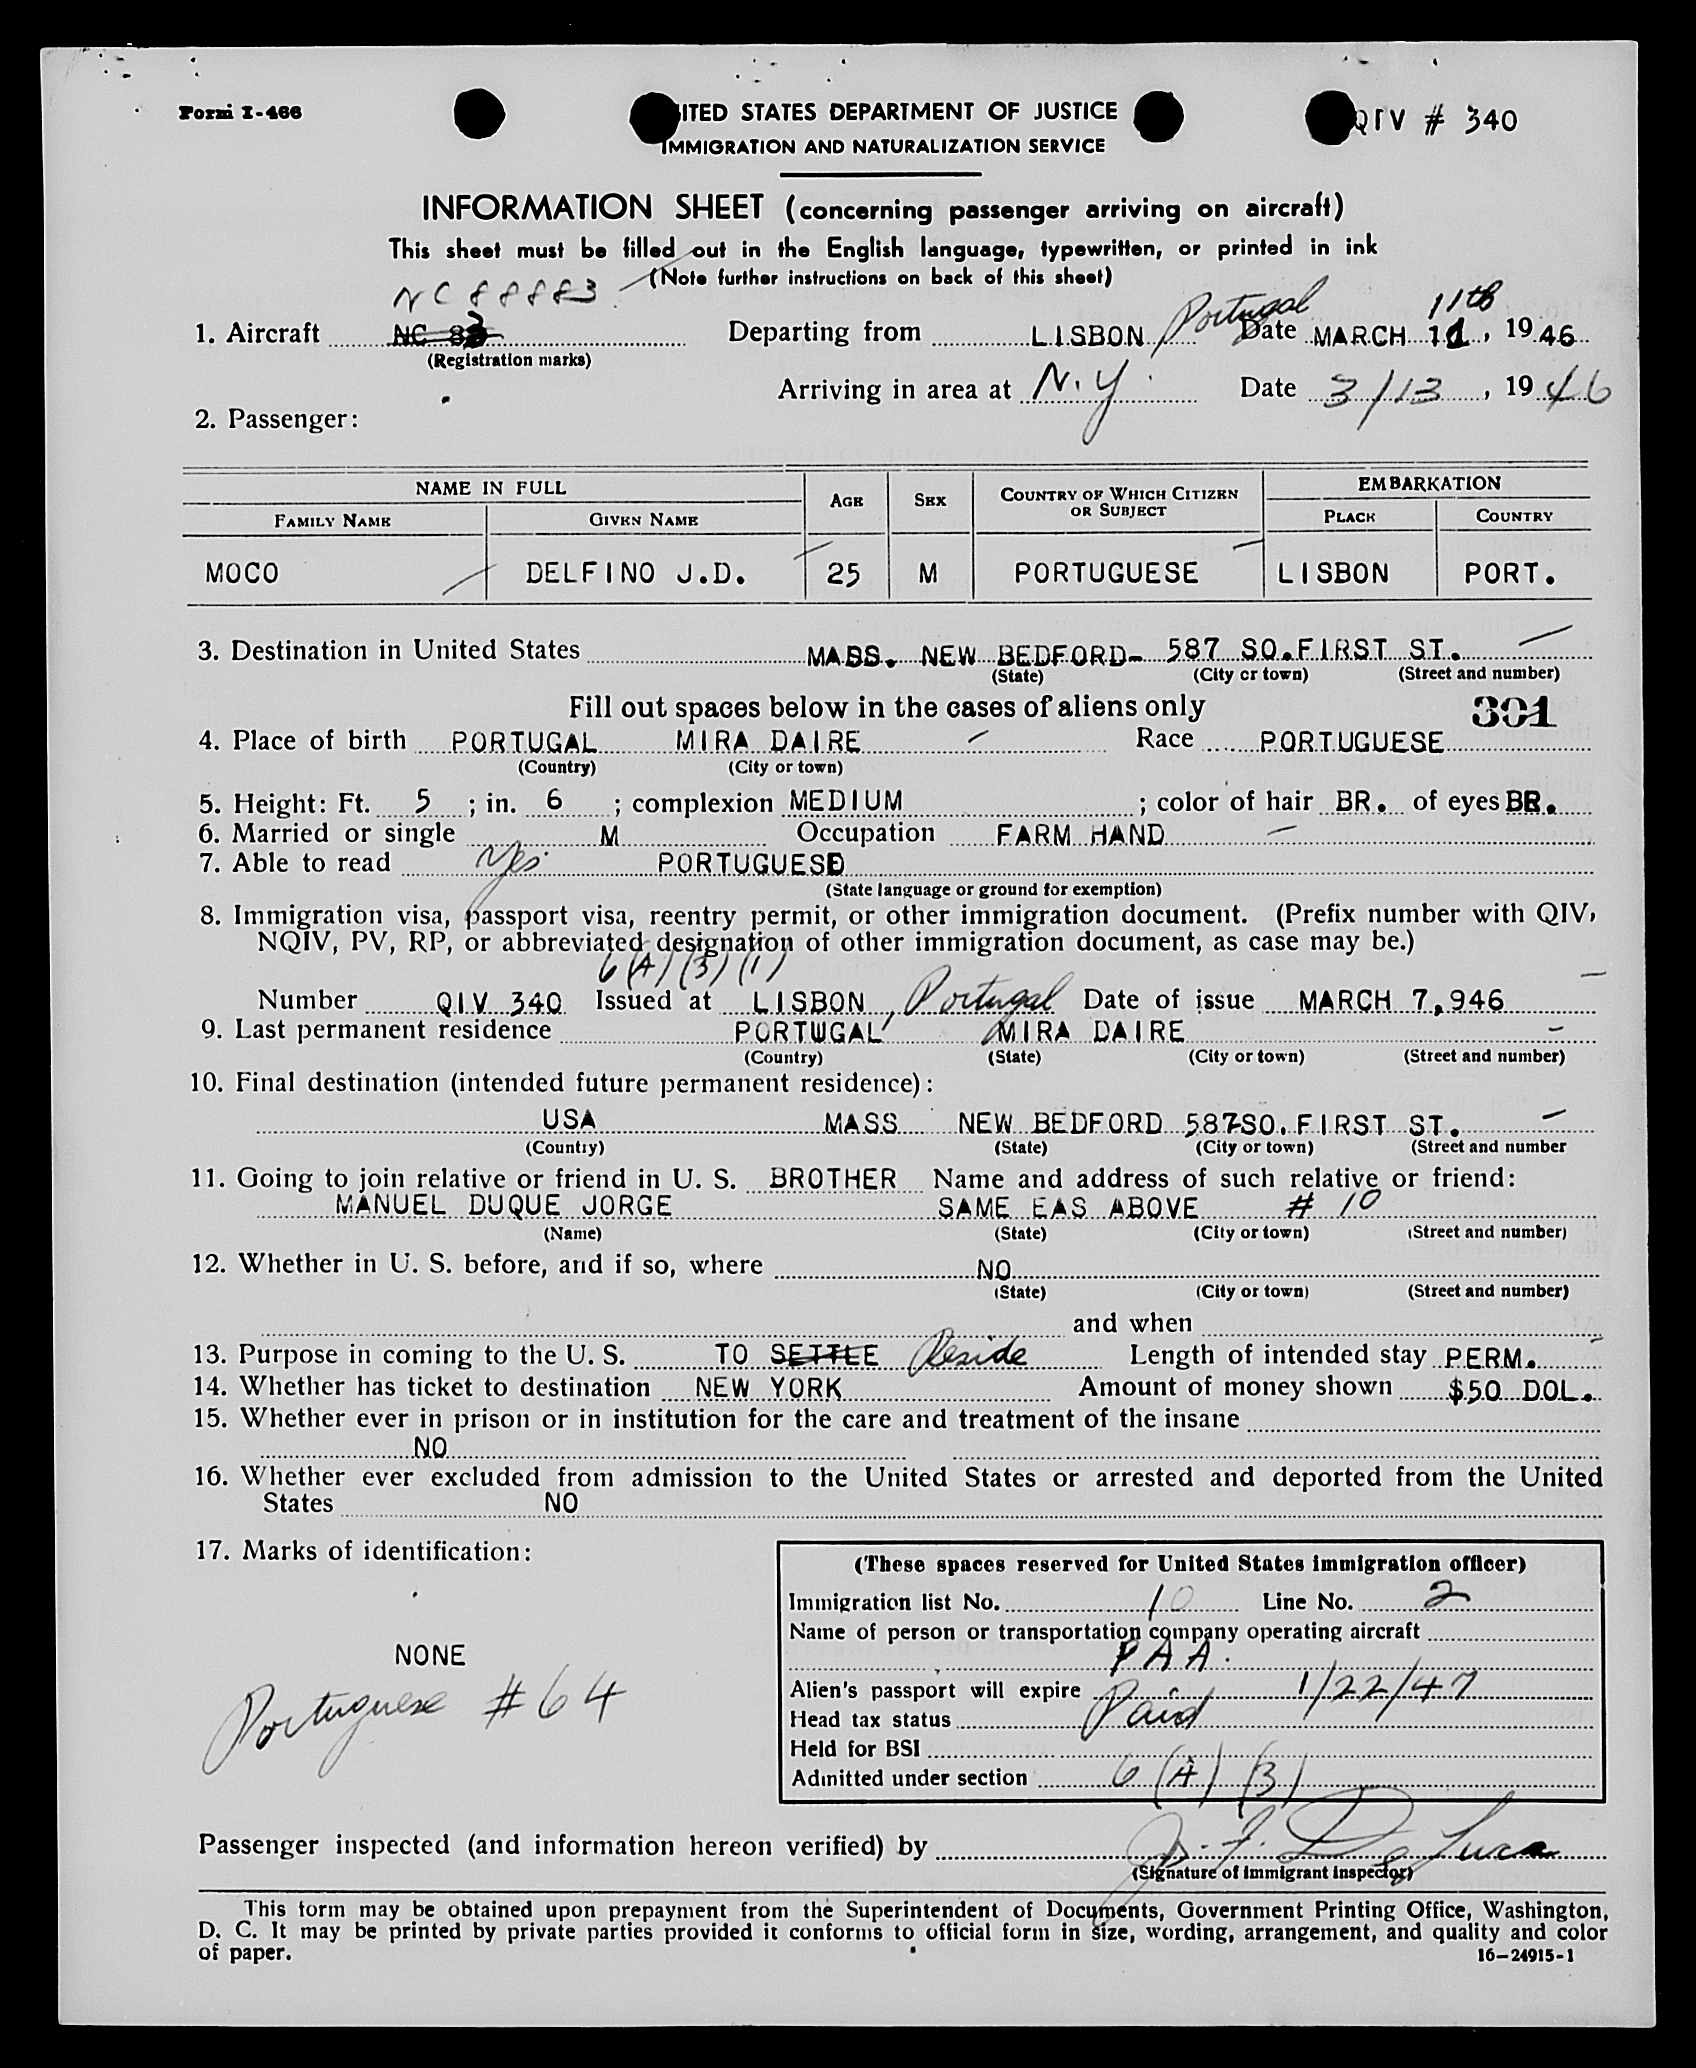 Form I-466
UNITED STATES DEPARTMENT OF JUSTICE
QIV # 340
IMMIGRATION AND NATURALIZATION SERVICE
INFORMATION SHEET (concerning passenger arriving on aircraft)
This sheet must be filled out in the English language, typewritten, or printed in ink
(Note further instructions on back of this sheet)
NC 88883
11th
1. Aircraft NC 83 Departing from LISBON Portugal Date MARCH 11, 1946
(Registration marks)
Arriving in area at N.Y. Date 3/13, 1946
2. Passenger:
NAME IN FULL AGE SEX COUNTRY OF WHICH CITIZEN OR SUBJECT EMBARKATION
FAMILY NAME GIVEN NAME PLACE COUNTRY
MOCO DELFINO J.D. 25 M PORTUGUESE LISBON PORT.
3. Destination in United States MASS. NEW BEDFORD- 587 SO.FIRST ST.
(State) (City or town) (Street and number)
Fill out spaces below in the cases of aliens only 301
4. Place of birth PORTUGAL MIRA DAIRE Race PORTUGUESE
(Country) (City or town)
5. Height: Ft. 5 ; in. 6 ; complexion MEDIUM ; color of hair BR. of eyes BR.
6. Married or single M Occupation FARM HAND
7. Able to read Yes PORTUGUESE
(State language or ground for exemption)
8. Immigration visa, passport visa, reentry permit, or other immigration document. (Prefix number with QIV,
NQIV, PV, RP, or abbreviated designation of other immigration document, as case may be.)
6 (A) (3) (1)
Number QIV 340 Issued at LISBON, Portugal Date of issue MARCH 7,946
9. Last permanent residence PORTUGAL MIRA DAIRE
(Country) (State) (City or town) (Street and number)
10. Final destination (intended future permanent residence):
USA MASS NEW BEDFORD 587SO.FIRST ST.
(Country) (State) (City or town) (Street and number
11. Going to join relative or friend in U. S. BROTHER Name and address of such relative or friend:
MANUEL DUQUE JORGE SAME EAS ABOVE # 10
(Name) (State) (City or town) (Street and number)
12. Whether in U. S. before, and if so, where NO
(State) (City or town) (Street and number)
and when
13. Purpose in coming to the U. S. TO SETTLE Reside Length of intended stay PERM.
14. Whether has ticket to destination NEW YORK Amount of money shown $50 DOL.
15. Whether ever in prison or in institution for the care and treatment of the insane
NO
16. Whether ever excluded from admission to the United States or arrested and deported from the United
States NO
17. Marks of identification:
NONE
Portuguese #64
(These spaces reserved for United States immigration officer)
Immigration list No. 10 Line No. 2
Name of person or transportation company operating aircraft
PAA.
Alien's passport will expire 1/22/47
Head tax status Paid
Held for BSI
Admitted under section 6 (A) (3)
Passenger inspected (and information hereon verified) by J. F. De Luca
(Signature of Immigrant Inspector)
This form may be obtained upon prepayment from the Superintendent of Documents, Government Printing Office, Washington,
D. C. It may be printed by private parties provided it conforms to official form in size, wording, arrangement, and quality and color
of paper. 16-24915-1